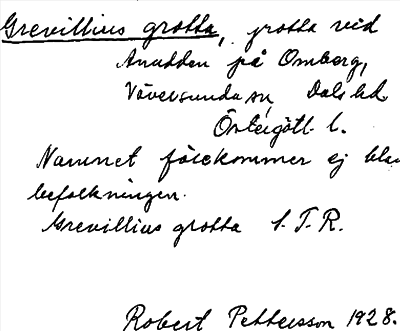 Grevillius grotta, grotta vid
Anudden på Omberg,
Väversunda sn, Dals hd
Östergötl. l.
Namnet förekommer ej bla
befolkningen.
Grevillius grotta S. T. R.
Robert Pettersson 1928.